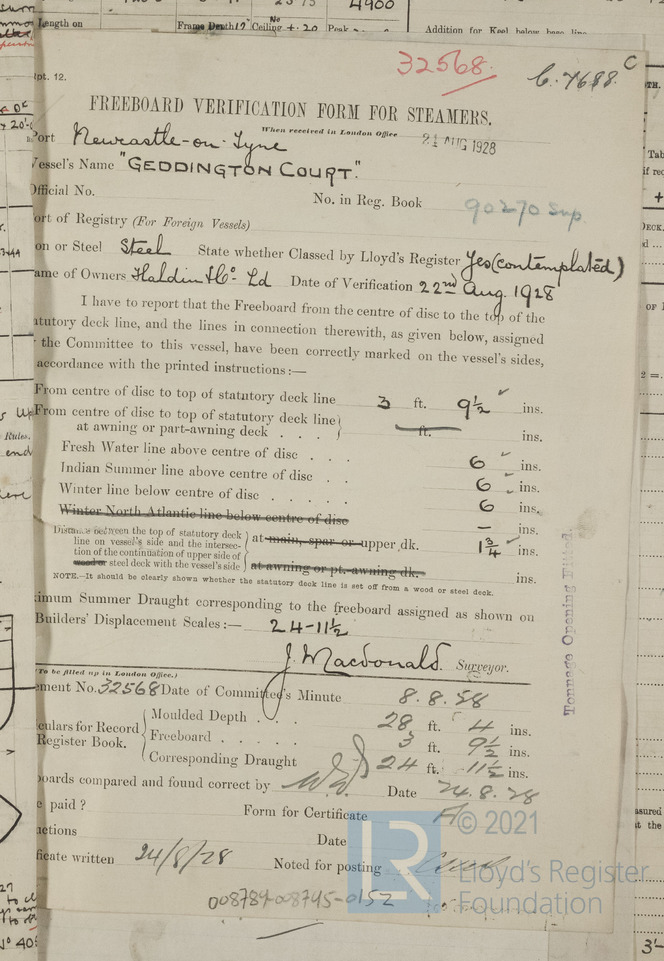 4900
Length on
Frame Depth 17" Ceiling + .20 Peak
No
Addition for Keel below base line
32568.
C. 7688.
C
pt. 12.
FREEBOARD VERIFICATION FORM FOR STEAMERS.
When received in London Office
21 AUG 1928
Port Newcastle-on-Tyne
Vessel's Name "GEDDINGTON COURT."
Official No.
No. in Reg. Book 90270 Sup.
ort of Registry (For Foreign Vessels)
on or Steel Steel State whether Classed by Lloyd's Register Yes (contemplated)
ame of Owners Haldin & Co. Ld Date of Verification 22nd Aug. 1928
I have to report that the Freeboard from the centre of disc to the top of the
atutory deck line, and the lines in connection therewith, as given below, assigned
the Committee to this vessel, have been correctly marked on the vessel's sides,
accordance with the printed instructions:—
From centre of disc to top of statutory deck line 3 ft. 9½ ins.
From centre of disc to top of statutory deck line
at awning or part-awning deck . . . ft. ins.
Fresh Water line above centre of disc . . . 6 ins.
Indian Summer line above centre of disc . . 6 ins.
Winter line below centre of disc . . . . . 6 ins.
Winter North Atlantic line below centre of disc — ins.
Distance between the top of statutory deck
line on vessel's side and the intersec-
tion of the continuation of upper side of
wood or steel deck with the vessel's side
at main, spar or upper dk. 1¾ ins.
at awning or pt.-awning dk. ins.
NOTE.—It should be clearly shown whether the statutory deck line is set off from a wood or steel deck.
imum Summer Draught corresponding to the freeboard assigned as shown on
Builders' Displacement Scales:— 24-11½
J. Macdonald. Surveyor.
(To be filled up in London Office.)
ement No. 32568 Date of Committee's Minute 8.8.28
culars for Record
Register Book.
Moulded Depth . . 28 ft. 4 ins.
Freeboard . . . . . 3 ft. 9½ ins.
Corresponding Draught 24 ft. 11½ ins.
boards compared and found correct by
Date 24.8.28
e paid ?
Form for Certificate A
actions
Date
ficate written 24/8/28
Noted for posting
008789-008795-0152
Tonnage Opening Fitted.
LR
© 2021
Lloyd's Register
Foundation